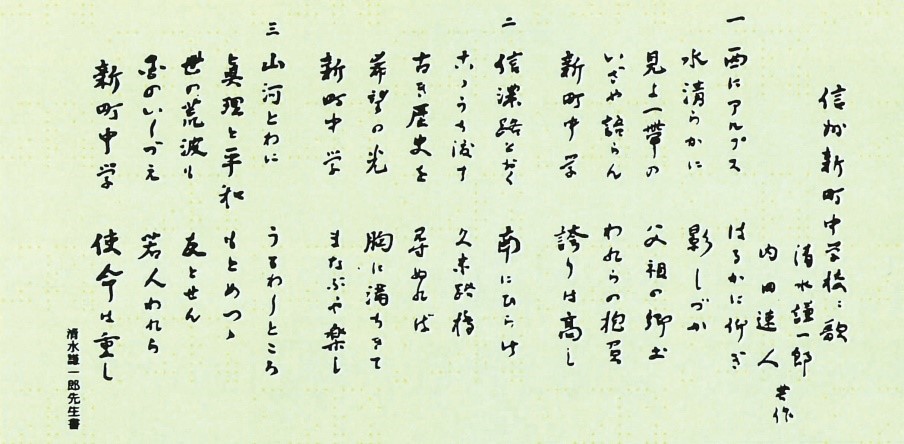 信州新町中学校々歌
清水謙一郎
内田速人
共作
一 西にアルプス はるかに仰ぎ
水清らかに 影しづか
見よ一帯の 父祖の郷土
いざや語らん われらの抱負
新町中学 誇りは高し
二 信濃路とおく 南にひらけ
うち渡す 久米路橋
古き歴史を 尋ぬれば
希望の光 胸に満ちきて
新町中学 まなぶや楽し
三 山河とわに うるわしところ
眞理と平和 もとめつゝ
世の荒波も 友とせん
国のいしづえ 若人われら
新町中学 使命は重し
清水謙一郎先生書